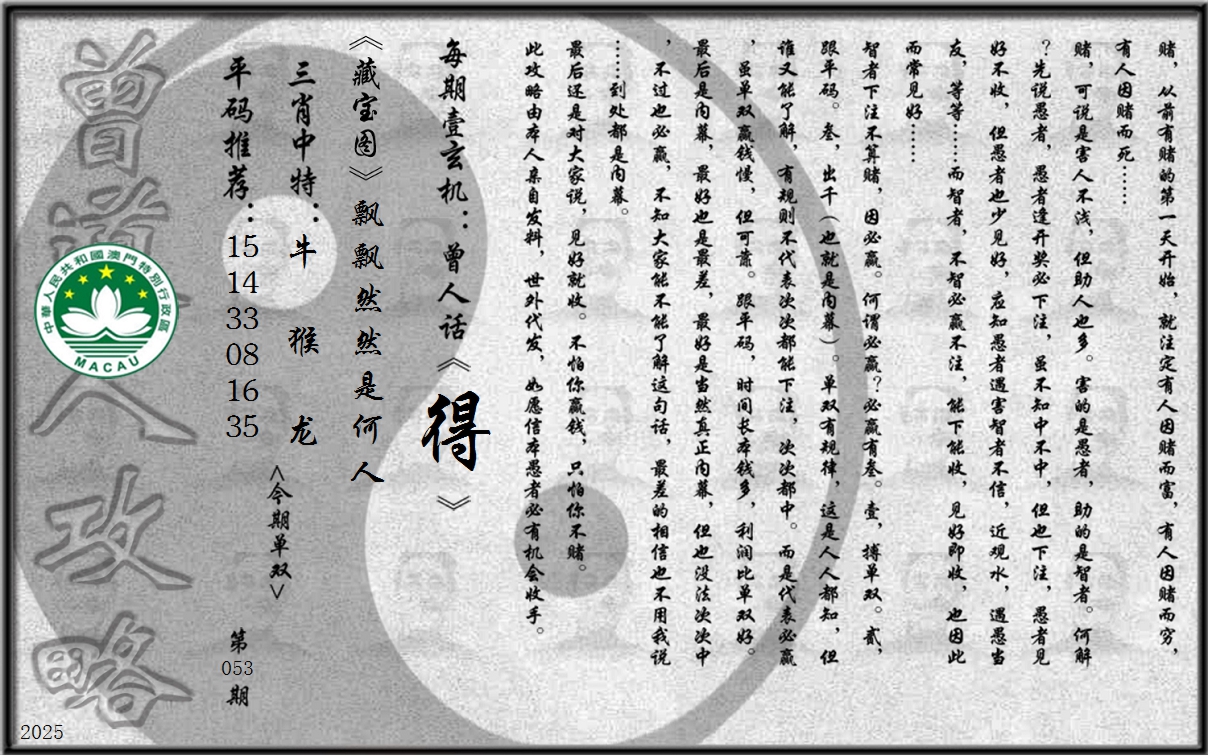 赌，从前有赌的第一天开始，就注定有人因赌而富，有人因赌而穷，
有人因赌而死……
赌，可说是害人不浅，但助人也多。害的是愚者，助的是智者。何解
？先说愚者，愚者逢开奖必下注，虽不知中不中，但也下注，愚者见
好不收，但愚者也少见好，应知愚者遇害智者不信，近观水，遇愚当
友，等等……而智者，不智必赢不注，能下能收，见好即收，也因此
而常见好……
智者下注不算赌，因必赢。何谓必赢？必赢有叁。壹，搏单双。贰，
跟平码。叁，出千（也就是内幕）。单双有规律，这是人人都知，但
谁又能了解，有规则不代表次次都能下注，次次都中。而是代表必赢
，虽单双赢钱慢，但可靠。跟平码，时间长本钱多，利润比单双好。
最后是内幕，最好也是最差，最好是当然真正内幕，但也没法次次中
，不过也必赢，不知大家能不能了解这句话，最差的相信也不用我说
……到处都是内幕。
最后还是对大家说，见好就收。不怕你赢钱，只怕你不赌。
此攻略由本人亲自发料，世外代发，如愿信本愚者必有机会收手。
每期壹玄机：曾人话《得》
《藏宝图》飘飘然然是何人
三肖中特：牛 猴 龙
<今期单双>
平码推荐：15 14 33 08 16 35
第053期
曾道人攻略
中華人民共和國澳門特別行政區
MACAU
2025